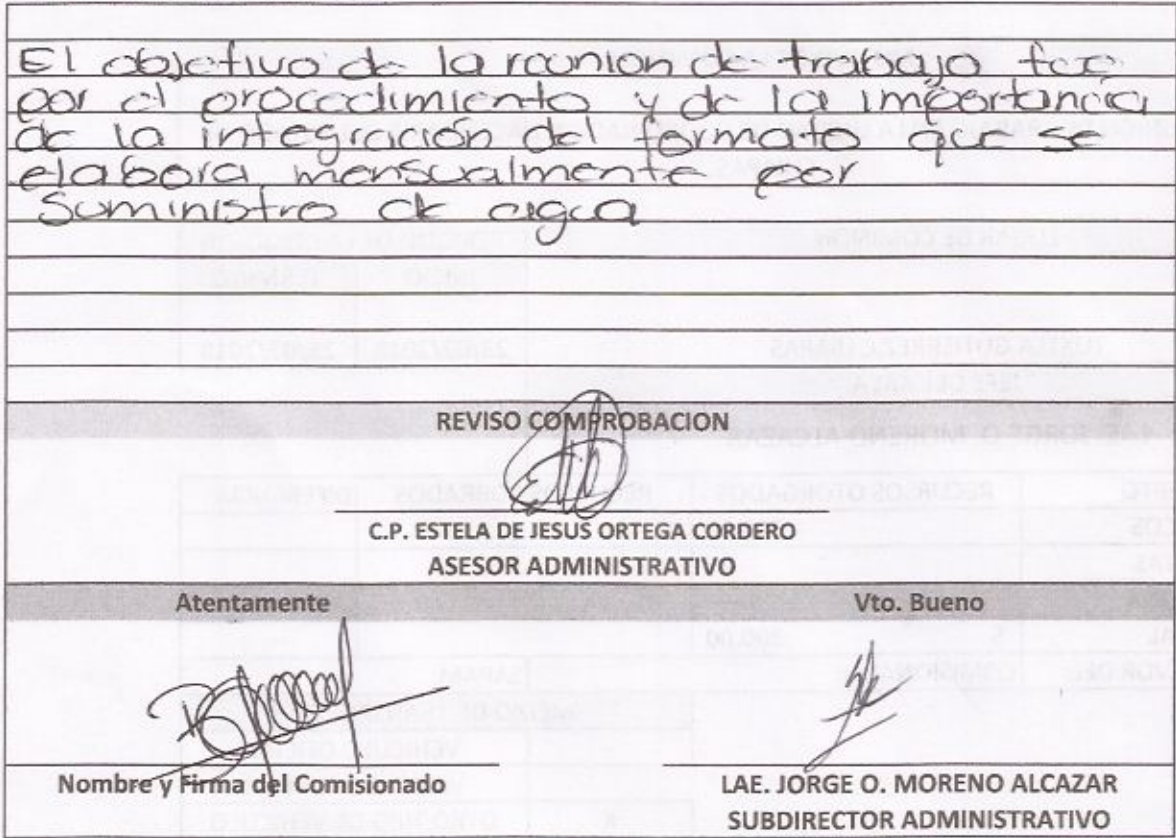 El objetivo de la reunion de trabajo fue
por el procedimiento y de la importancia
de la integración del formato que se
elabora mensualmente por
suministro de agua
REVISO COMPROBACION
C.P. ESTELA DE JESUS ORTEGA CORDERO
ASESOR ADMINISTRATIVO
Atentamente
Vto. Bueno
Nombre y Firma del Comisionado
LAE. JORGE O. MORENO ALCAZAR
SUBDIRECTOR ADMINISTRATIVO